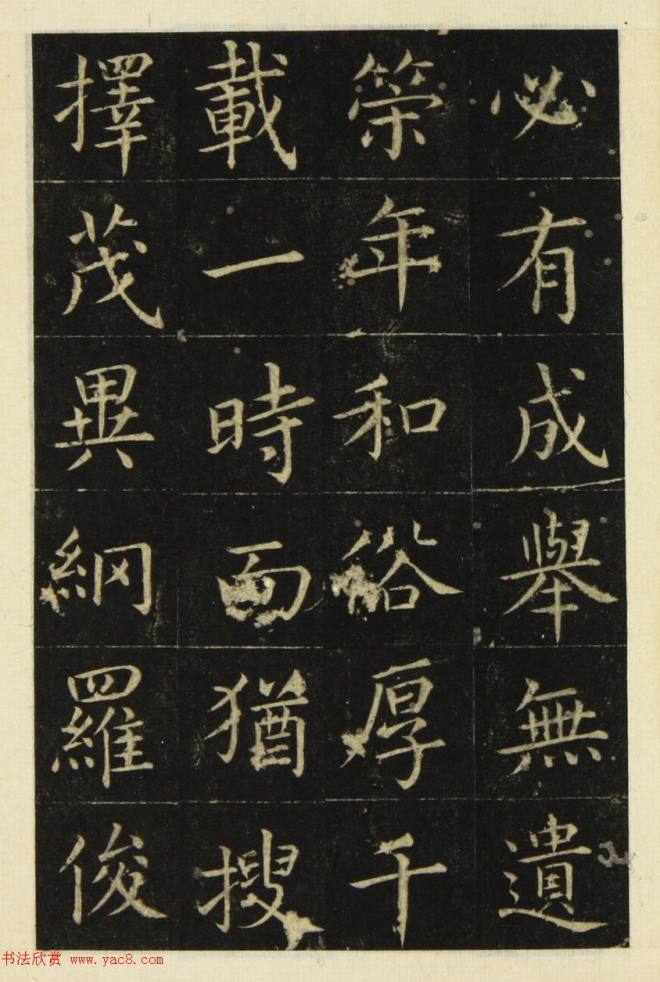 必有成舉無遺
策年和俗厚千
載一時而猶搜
擇茂異網羅俊
书法欣赏 www.yac8.com